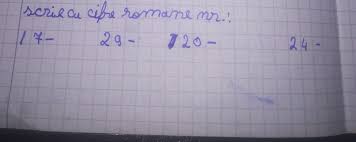 scrie cu cifre romane nr.:
17- 29- 120- 24-